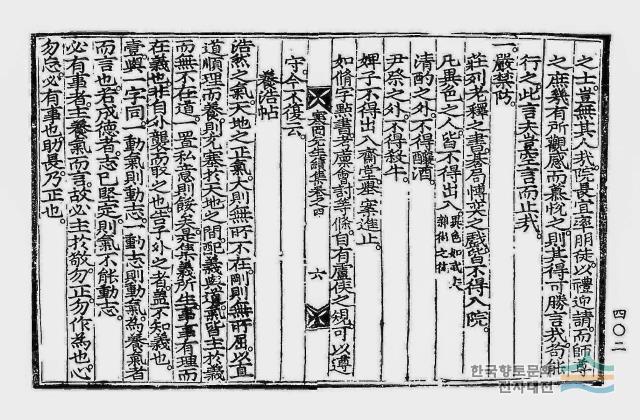 之士豈無其人哉院長宜率朋徒以禮迎請而師尊
之庶幾有所觀感而慕悅之則其得可勝言哉苟能
行之此言夫豈空言而止哉
一嚴禁防
莊列老釋之書棊局博奕之戲皆不得入院
凡異色之人皆不得出入異色如戎人雜術之徒
清酌之外不得釀酒
尹祭之外不得殺牛
婢子不得出入齋堂與案進止
如脩字點書考廩會討等條自有廬侠之規可以遵
守今不復云
養浩帖
浩然之氣天地之正氣大則無所不在剛則無所屈以直
道順理而養則充塞於天地之間配義與道氣皆主於義
而無不在道一置私意則餒矣是集義所生事事有理而
在義也非自外襲而取之也告子外之者盖不知義也
壹與一字同一動氣則動志一動志則動氣為養氣者
而言也若成德者志已堅定則氣不能動志
必有事者主養氣而言故必主於敬勿正勿作為也心
勿忘必有事也助長乃正也
六
四〇二
한국향토문화
전자대전